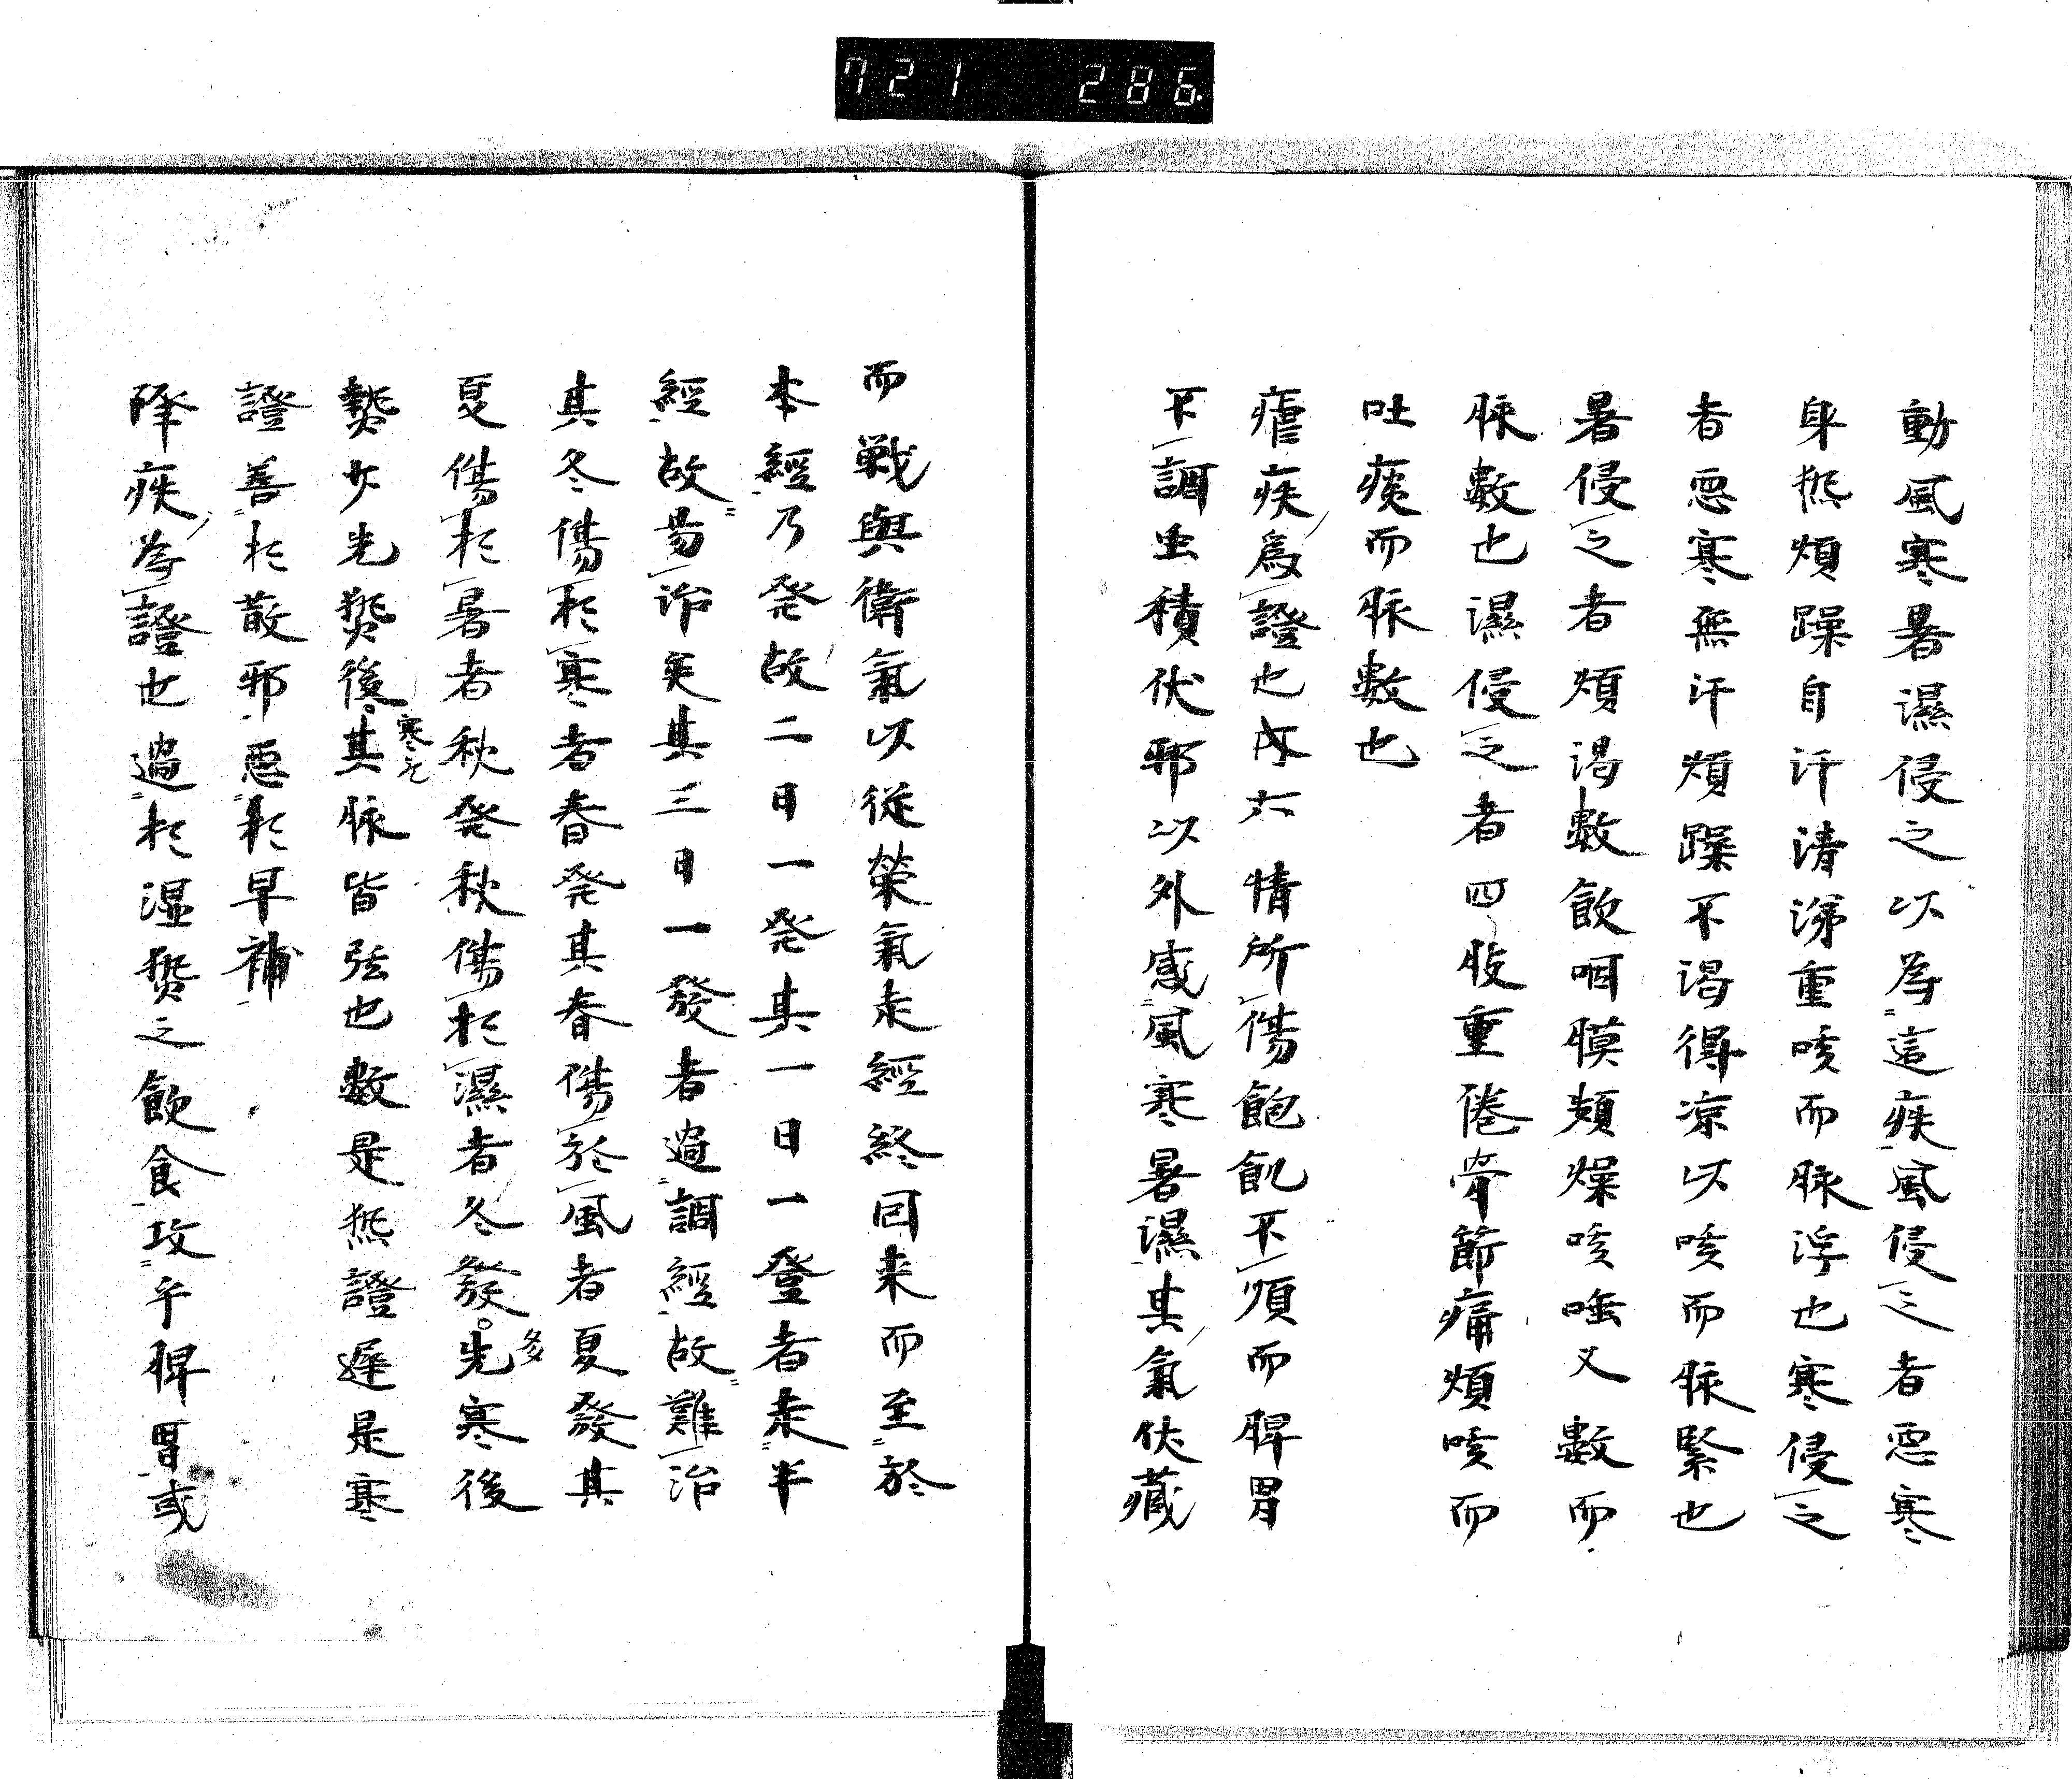 721 286
動風寒暑濕侵之以為這疾風侵之者惡寒
身熱煩躁自汗清涕重咳而脉浮也寒侵之
者惡寒無汗煩躁不渇得凉以咳而脉緊也
暑侵之者煩渇數飲咽膜頬燥咳唾又數而
脉數也濕侵之者四肢重倦骨節痛煩咳而
吐痰而脉數也
瘧疾為證也内六情所傷飽飢不順而脾胃
不調虫積伏邪以外感風寒暑濕其氣伏藏
而戦與衛氣以從榮氣走經終回来而至於
本經乃発故二日一発其一日一登者走半
經故昜治矣其三日一發者過調經故難治
其冬傷於寒者春発其春傷於風者夏發其
夏傷於暑者秋発秋傷於濕者冬發多先寒後
熱少先熱後寒其脉皆弦也數是熱證遲是寒
證善於散邪惡於早補
降疾為證也過於湿熱之飲食攻乎脾胃或